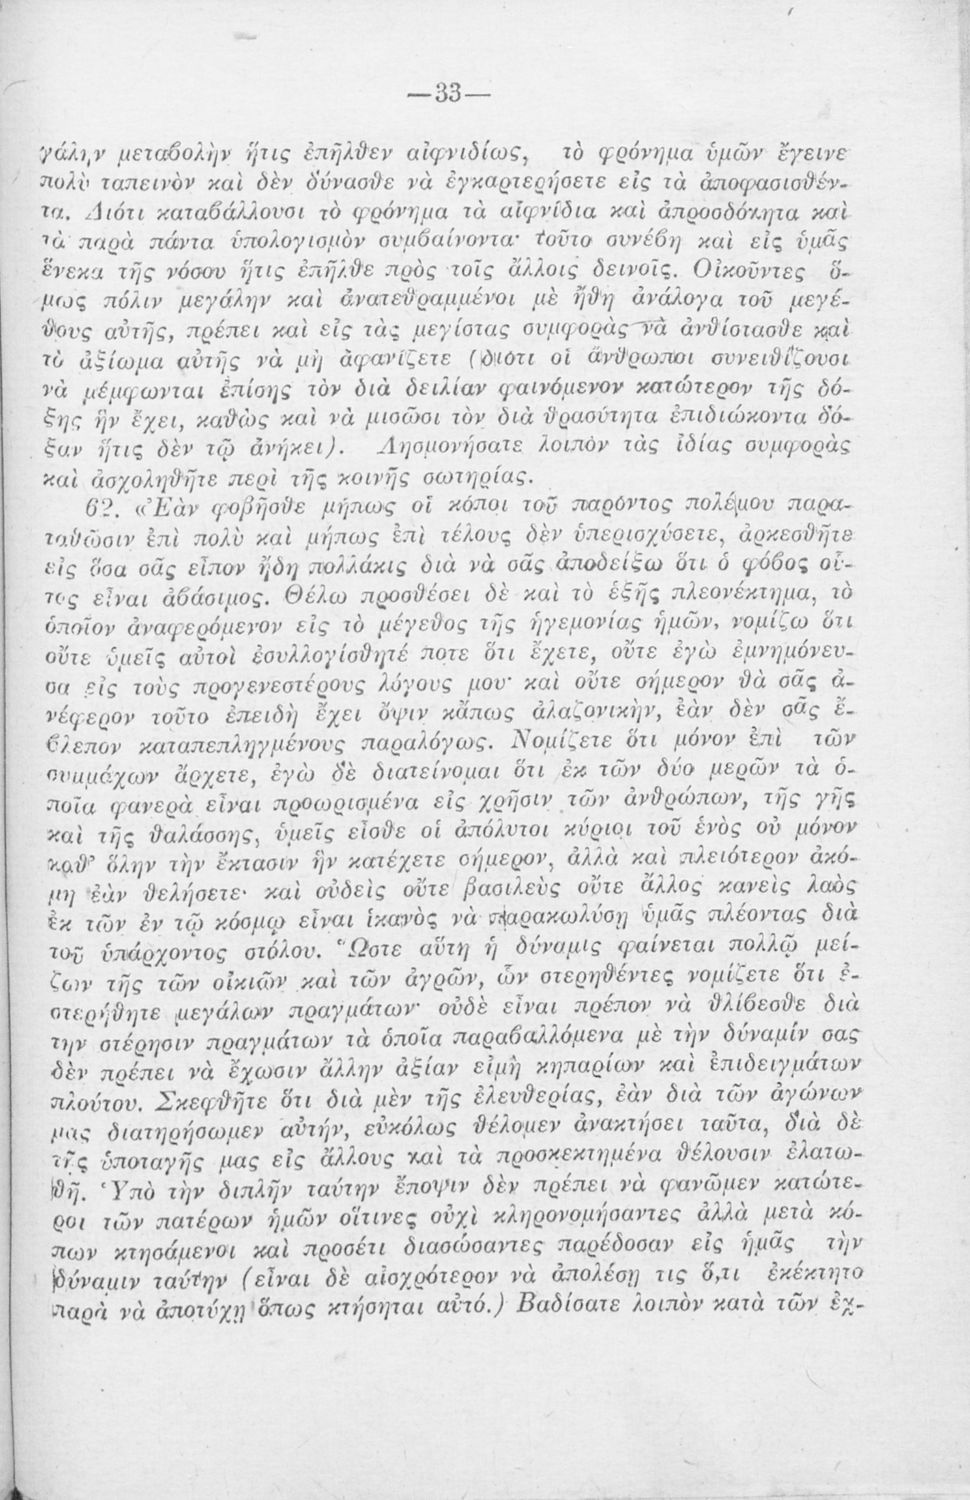 —33—
γάλην μεταβολὴν ἥτις ἐπῆλθεν αἰφνιδίως, τὸ φρόνημα ὑμῶν ἔγεινε
πολὺ ταπεινὸν καὶ δὲν δύνασθε νὰ ἐγκαρτερήσετε εἰς τὰ ἀποφασισθέν-
τα. Διότι καταβάλλουσι τὸ φρόνημα τὰ αἰφνίδια καὶ ἀπροσδόκητα καὶ
τὰ παρὰ πάντα ὑπολογισμὸν συμβαίνοντα· τοῦτο συνέβη καὶ εἰς ὑμᾶς
ἕνεκα τῆς νόσου ἥτις ἐπῆλθε πρὸς τοῖς ἄλλοις δεινοῖς. Οἰκοῦντες ὅ-
μως πόλιν μεγάλην καὶ ἀνατεθραμμένοι μὲ ἤθη ἀνάλογα τοῦ μεγέ-
θους αὐτῆς, πρέπει καὶ εἰς τὰς μεγίστας συμφορὰς νὰ ἀνθίστασθε καὶ
τὸ ἀξίωμα αὐτῆς νὰ μὴ ἀφανίζετε (διότι οἱ ἄνθρωποι συνειθίζουσι
νὰ μέμφωνται ἐπίσης τὸν διὰ δειλίαν φαινόμενον κατώτερον τῆς δό-
ξης ἣν ἔχει, καθὼς καὶ νὰ μισῶσι τὸν διὰ θρασύτητα ἐπιδιώκοντα δό-
ξαν ἥτις δὲν τῷ ἀνήκει). Λησμονήσατε λοιπὸν τὰς ἰδίας συμφορὰς
καὶ ἀσχοληθῆτε περὶ τῆς κοινῆς σωτηρίας.
62. «Ἐὰν φοβῆσθε μήπως οἱ κόποι τοῦ παρόντος πολέμου παρα-
ταθῶσιν ἐπὶ πολὺ καὶ μήπως ἐπὶ τέλους δὲν ὑπερισχύσετε, ἀρκεσθῆτε
εἰς ὅσα σᾶς εἶπον ἤδη πολλάκις διὰ νὰ σᾶς ἀποδείξω ὅτι ὁ φόβος οὗ-
τος εἶναι ἀβάσιμος. Θέλω προσθέσει δὲ καὶ τὸ ἑξῆς πλεονέκτημα, τὸ
ὁποῖον ἀναφερόμενον εἰς τὸ μέγεθος τῆς ἡγεμονίας ἡμῶν, νομίζω ὅτι
οὔτε ὑμεῖς αὐτοὶ ἐσυλλογίσθητέ ποτε ὅτι ἔχετε, οὔτε ἐγὼ ἐμνημόνευ-
σα εἰς τοὺς προγενεστέρους λόγους μου· καὶ οὔτε σήμερον θὰ σᾶς ἀ-
νέφερον τοῦτο ἐπειδὴ ἔχει ὄψιν κἄπως ἀλαζονικὴν, ἐὰν δὲν σᾶς ἔ-
βλεπον καταπεπληγμένους παραλόγως. Νομίζετε ὅτι μόνον ἐπὶ τῶν
συμμάχων ἄρχετε, ἐγὼ δὲ διατείνομαι ὅτι ἐκ τῶν δύο μερῶν τὰ ὁ-
ποῖα φανερὰ εἶναι προωρισμένα εἰς χρῆσιν τῶν ἀνθρώπων, τῆς γῆς
καὶ τῆς θαλάσσης, ὑμεῖς εἶσθε οἱ ἀπόλυτοι κύριοι τοῦ ἑνὸς οὐ μόνον
καθ' ὅλην τὴν ἔκτασιν ἣν κατέχετε σήμερον, ἀλλὰ καὶ πλειότερον ἀκό-
μη ἐὰν θελήσετε· καὶ οὐδεὶς οὔτε βασιλεὺς οὔτε ἄλλος κανεὶς λαὸς
ἐκ τῶν ἐν τῷ κόσμῳ εἶναι ἱκανὸς νὰ παρακωλύσῃ ὑμᾶς πλέοντας διὰ
τοῦ ὑπάρχοντος στόλου. Ὥστε αὕτη ἡ δύναμις φαίνεται πολλῷ μεί-
ζων τῆς τῶν οἰκιῶν καὶ τῶν ἀγρῶν, ὧν στερηθέντες νομίζετε ὅτι ἐ-
στερήθητε μεγάλων πραγμάτων· οὐδὲ εἶναι πρέπον νὰ θλίβεσθε διὰ
την στέρησιν πραγμάτων τὰ ὁποῖα παραβαλλόμενα μὲ τὴν δύναμίν σας
δὲν πρέπει νὰ ἔχωσιν ἄλλην ἀξίαν εἰμὴ κηπαρίων καὶ ἐπιδειγμάτων
πλούτου. Σκεφθῆτε ὅτι διὰ μὲν τῆς ἐλευθερίας, ἐὰν διὰ τῶν ἀγώνων
μας διατηρήσωμεν αὐτήν, εὐκόλως θέλομεν ἀνακτήσει ταῦτα, διὰ δὲ
τῆς ὑποταγῆς μας εἰς ἄλλους καὶ τὰ προσκεκτημένα θέλουσιν ἐλατω-
θῆ. Ὑπὸ τὴν διπλῆν ταύτην ἔποψιν δὲν πρέπει νὰ φανῶμεν κατώτε-
ροι τῶν πατέρων ἡμῶν οἵτινες οὐχὶ κληρονομήσαντες ἀλλὰ μετὰ κό-
πων κτησάμενοι καὶ προσέτι διασώσαντες παρέδοσαν εἰς ἡμᾶς τὴν
δύναμιν ταύτην (εἶναι δὲ αἰσχρότερον νὰ ἀπολέσῃ τις ὅ,τι ἐκέκτητο
παρὰ νὰ ἀποτύχῃ ὅπως κτήσηται αὐτό.) Βαδίσατε λοιπὸν κατὰ τῶν ἐχ-